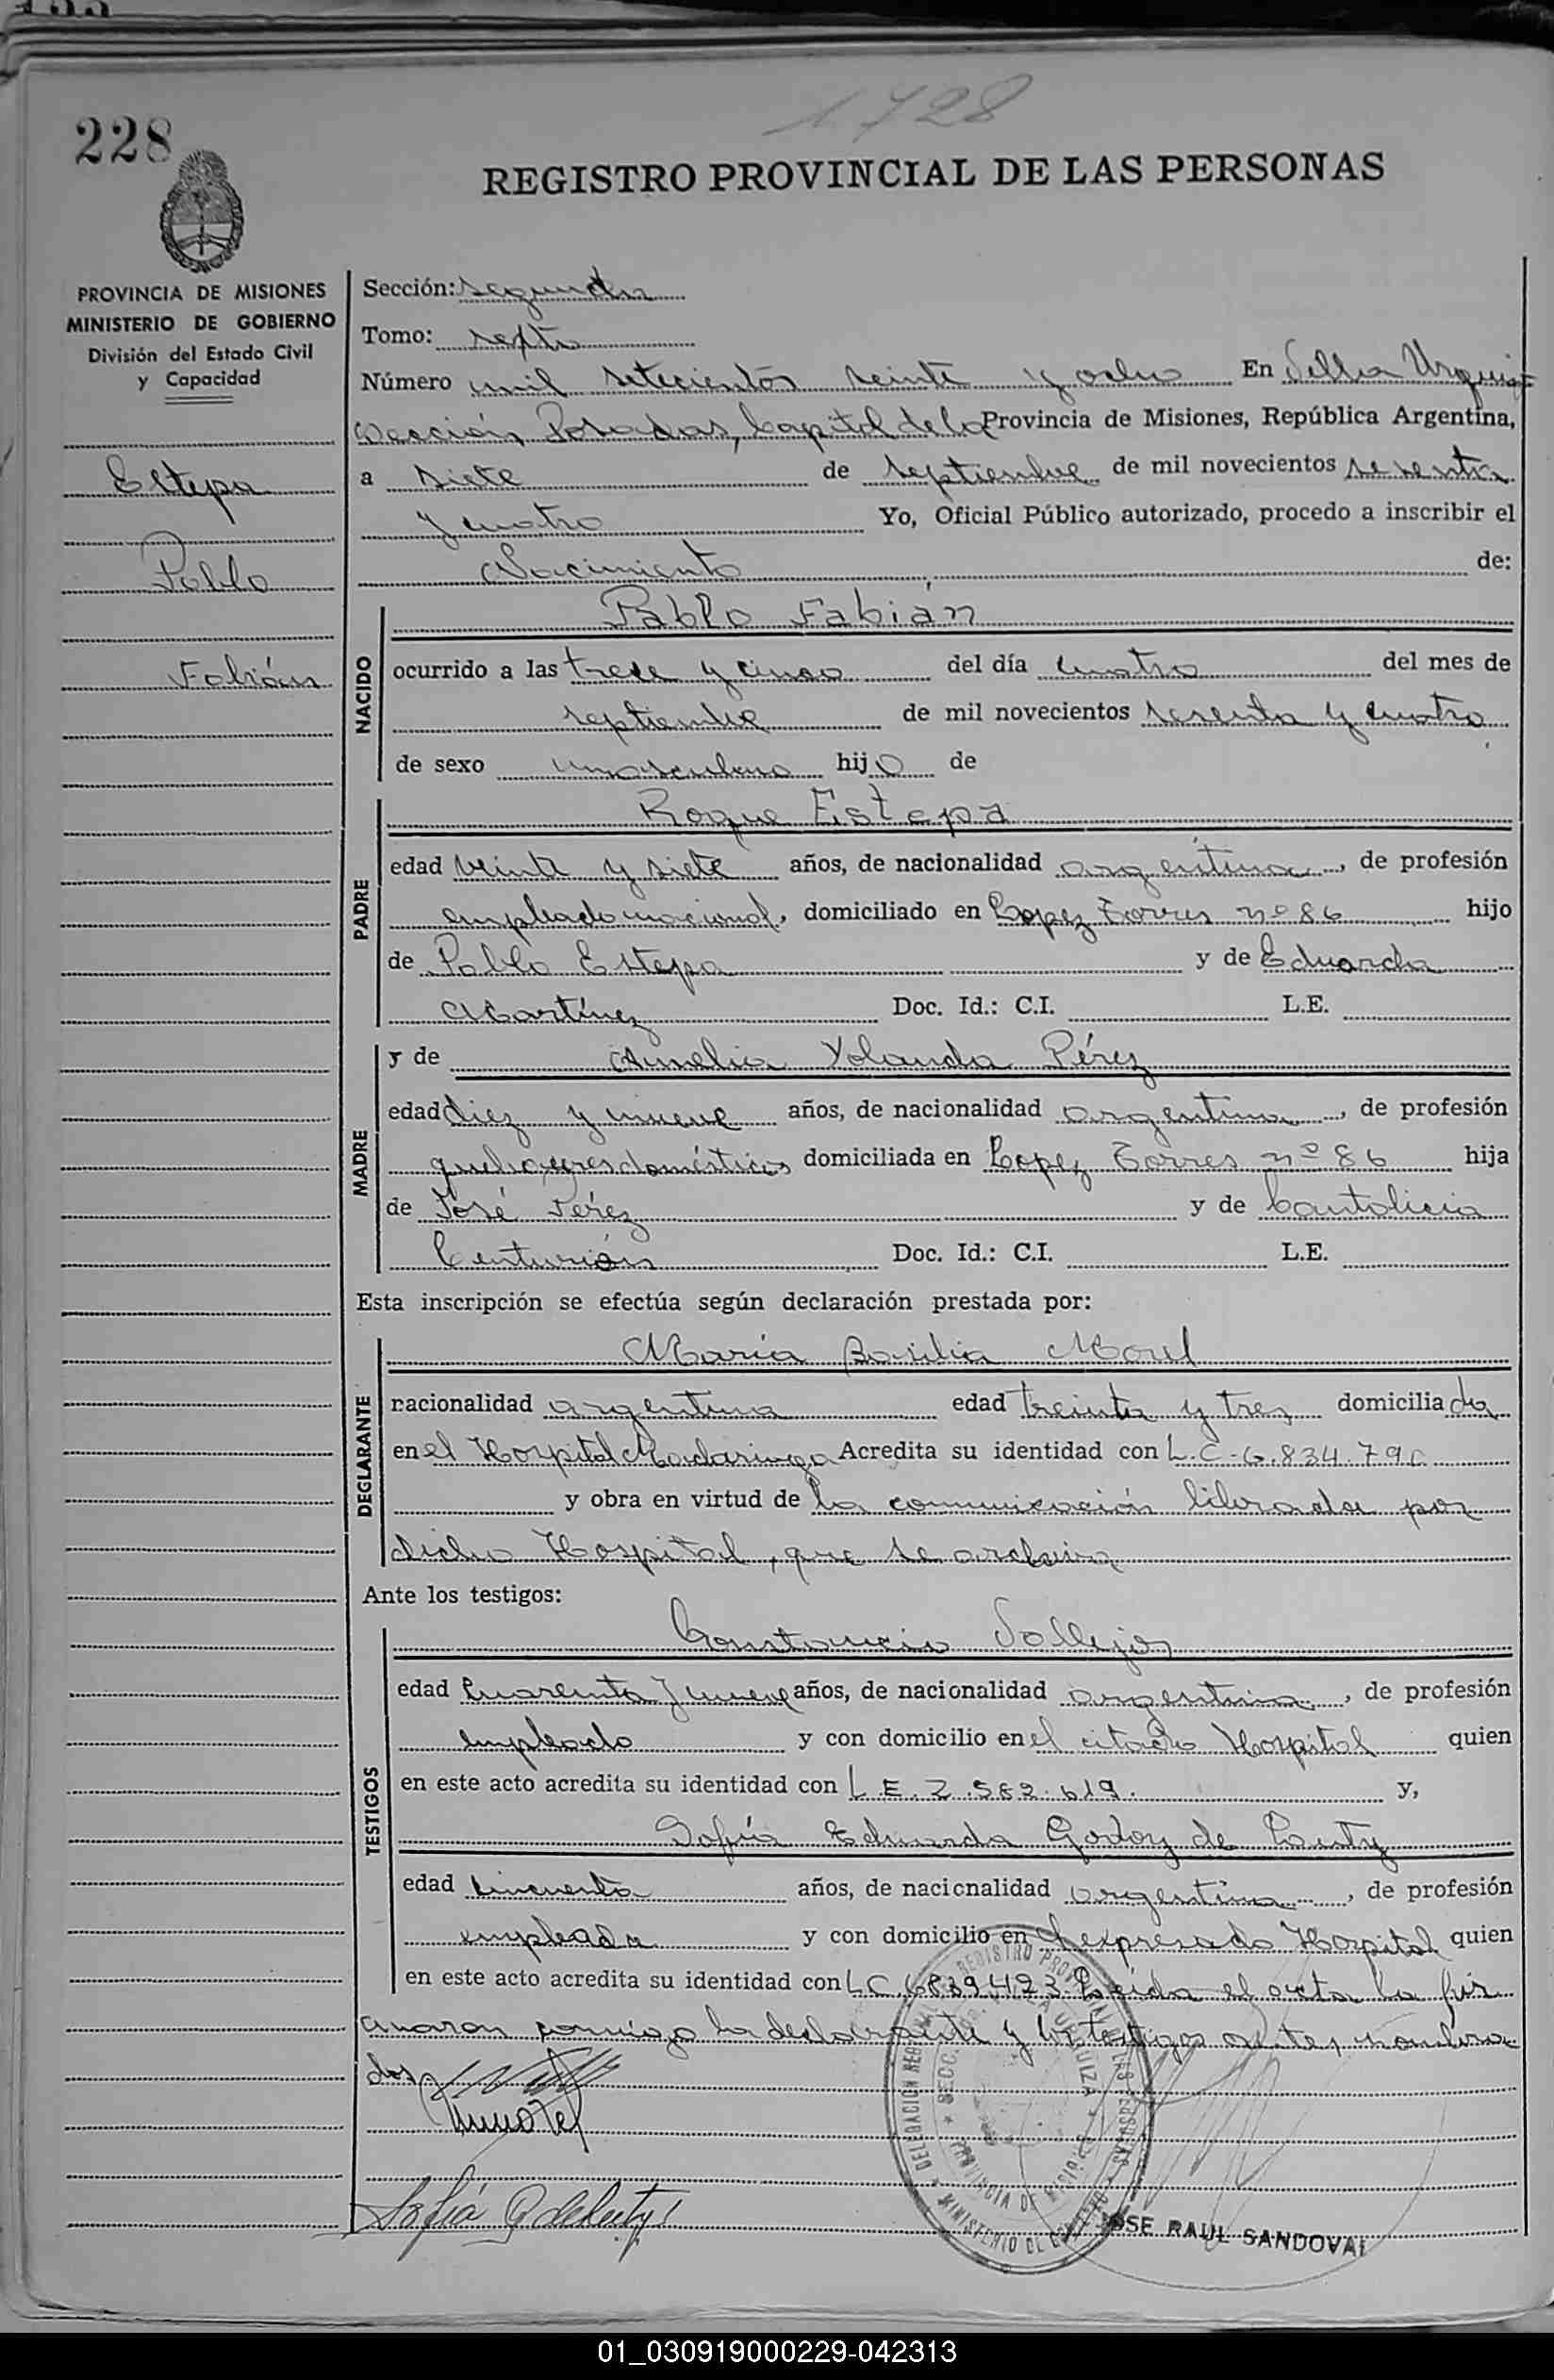 1728
228
REGISTRO PROVINCIAL DE LAS PERSONAS
PROVINCIA DE MISIONES
MINISTERIO DE GOBIERNO
División del Estado Civil
y Capacidad
Estepa
Pablo
Fabián
Sección: segunda
Tomo: septo
Número mil setecientos veinte y ocho En Villa Urquiza
sección Posadas, Capital de la Provincia de Misiones, República Argentina,
a siete de septiembre de mil novecientos sesenta
y cuatro Yo, Oficial Público autorizado, procedo a inscribir el
Nacimiento de:
NACIDO
Pablo Fabián
ocurrido a las trece y cinco del día cuatro del mes de
septiembre de mil novecientos sesenta y cuatro
de sexo masculino hijo de
PADRE
Roque Estepa
edad veinte y siete años, de nacionalidad argentina, de profesión
empleado nacional, domiciliado en Lopez Torres nº 86 hijo
de Pablo Estepa y de Eduarda
Martínez Doc. Id.: C.I. L.E.
MADRE
y de Amelia Yolanda Pérez
edad diez y nueve años, de nacionalidad argentina, de profesión
quehaceres domésticos domiciliada en Lopez Torres nº 86 hija
de José Pérez y de Cantalicia
Centurión Doc. Id.: C.I. L.E.
Esta inscripción se efectúa según declaración prestada por:
DECLARANTE
María Basilia Morel
nacionalidad argentina edad treinta y tres domiciliada
en el Hospital Madariaga Acredita su identidad con L.C-6.834.796
y obra en virtud de la comunicación librada por
dicho Hospital, que se archiva
Ante los testigos:
TESTIGOS
Constancio Vallejos
edad cuarenta y nueve años, de nacionalidad argentina, de profesión
empleado y con domicilio en el citado Hospital quien
en este acto acredita su identidad con L.E. 2.582.619. y,
Sofía Eduarda Godoy de Lauty
edad cincuenta años, de nacionalidad argentina, de profesión
empleada y con domicilio en el expresado Hospital quien
en este acto acredita su identidad con L C 6839423 Leída el acta la fir
maron conmigo la declarante y los testigos antes nombra
dos
Sofiá G de Lauty
DELEGACION REGISTRO PROVINCIAL DE LAS PERSONAS
MINISTERIO DE GOBIERNO
SECC. VILLA URQUIZA
PROVINCIA DE MISIONES
JOSE RAUL SANDOVAL
01_030919000229-042313